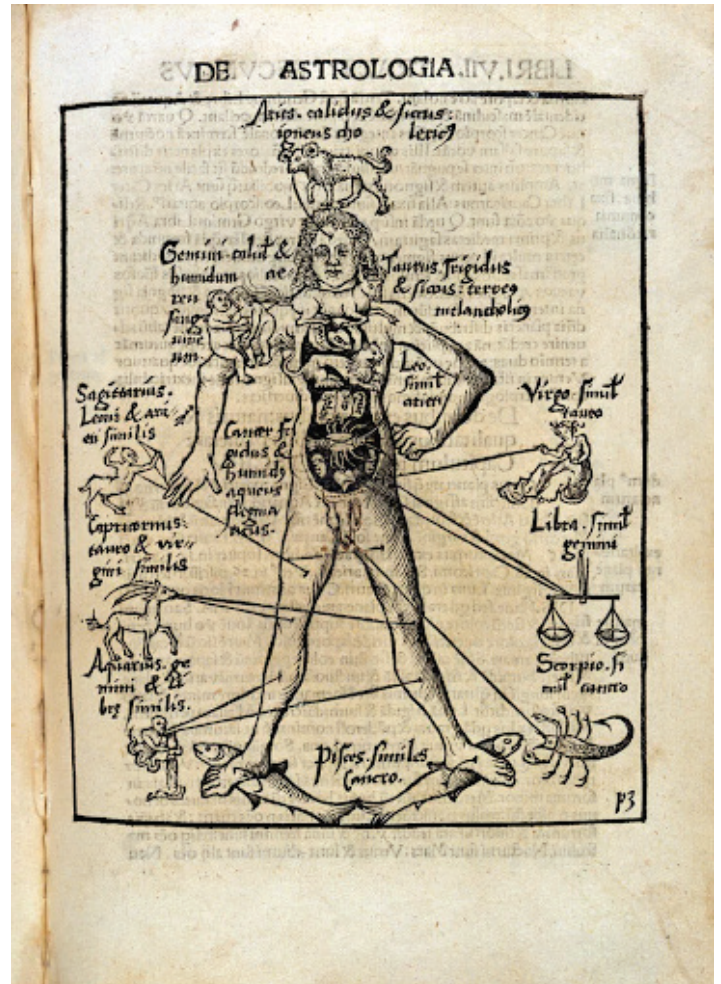 DE ASTROLOGIA
Aries. calidus & siccus:
igneus cho lericꝰ
Gemini. calid &
humidum ae-
reu
sang
uine
um.
Taurus. frigidus
& siccus: terreꝰ
melancholicꝰ
Leo.
simil
arieti
Sagittarius.
Leoni & ari-
eti similis
Cancer fri
gidus &
humidꝰ
aqueus
flegma
ticus.
Virgo. simil
tauro
Capricornus:
tauro & vir-
gini similis
Libra. simil
gemini
Aquarius. ge
mini & li
bre similis.
Scorpio. si
mil cancro
Pisces. similes
Cancro.
p3